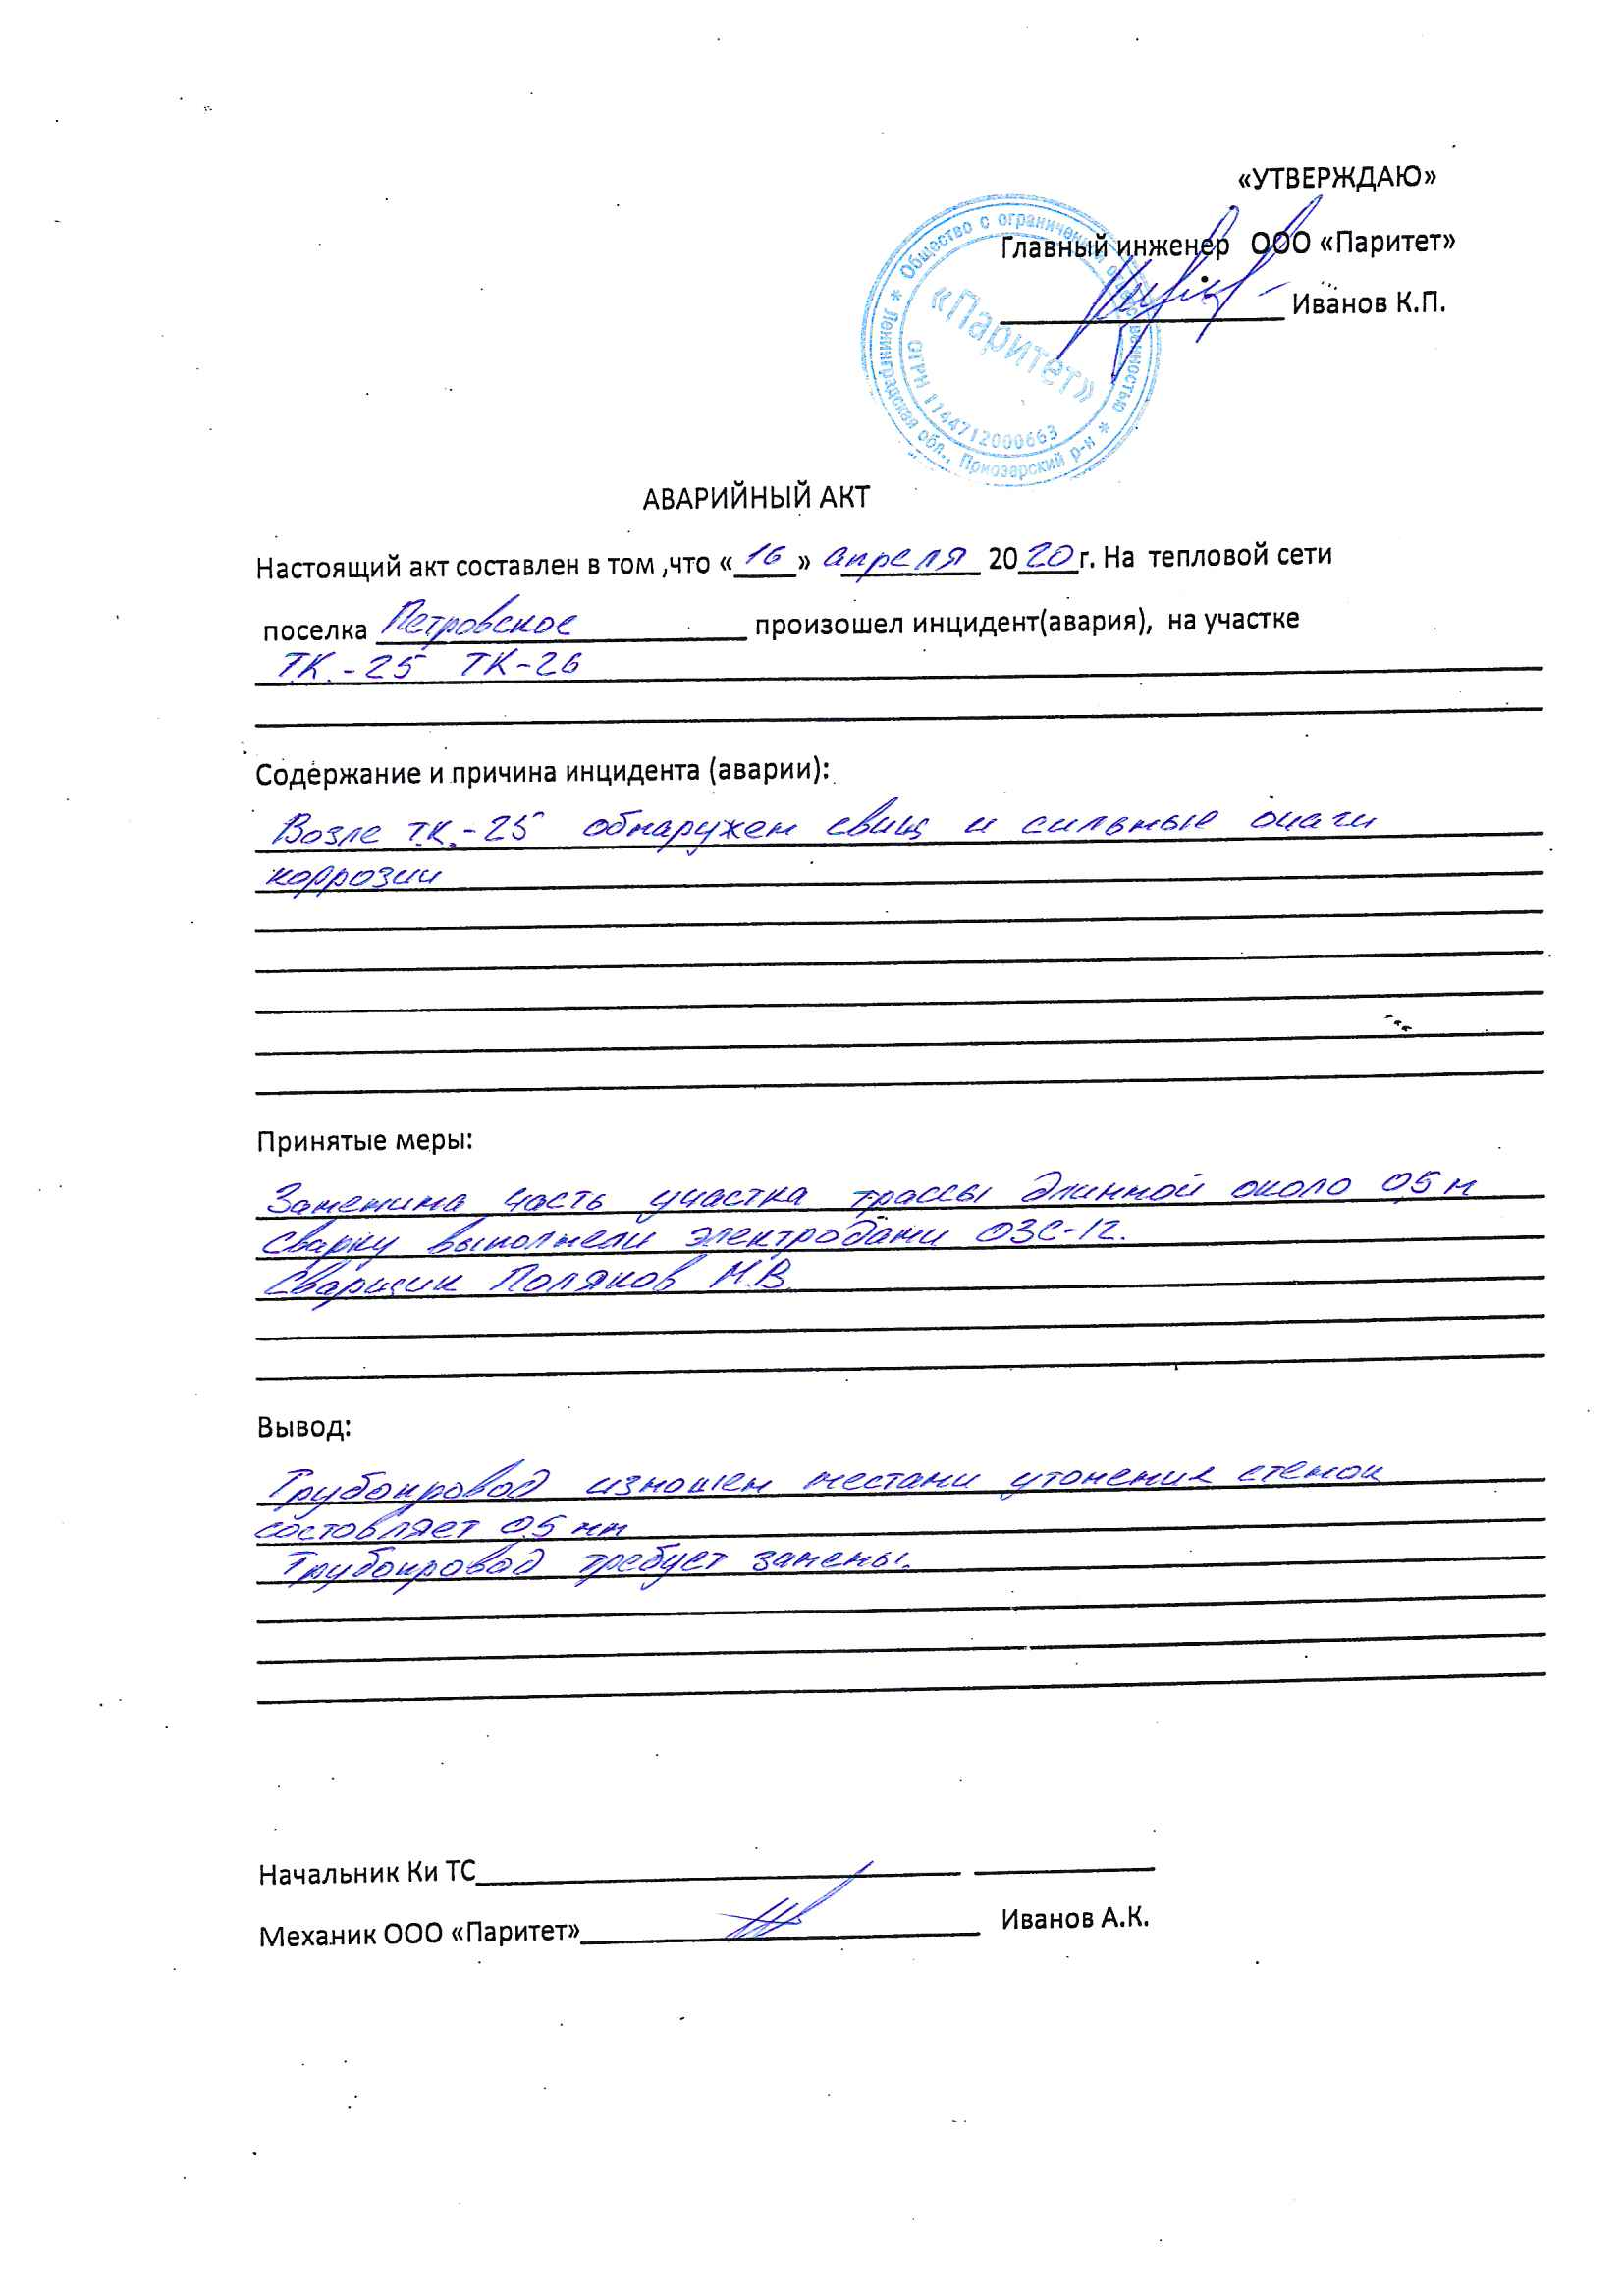 «УТВЕРЖДАЮ»
Главный инженер ООО «Паритет»
Иванов К.П.
* Общество с ограниченной ответственностью * Ленинградская обл., Приозерский р-н
«Паритет»
ОГРН 1144712000663
АВАРИЙНЫЙ АКТ
Настоящий акт составлен в том ,что «16» апреля 2020г. На тепловой сети
поселка Петровское произошел инцидент(авария), на участке
ТК.-25 ТК-26
Содержание и причина инцидента (аварии):
Возле т.к.-25 обнаружен свищ и сильные очаги
коррозии
Принятые меры:
Заменина часть участка трассы длинной около 0,5 м
Сварку выполнели электродами ОЗС-12.
Сварщик Поляков М.В.
Вывод:
Трубопровод изношен местами утонения стенок
составляет 0,5 мм
Трубопровод требует замены.
Начальник Ки ТС
Механик ООО «Паритет» Иванов А.К.